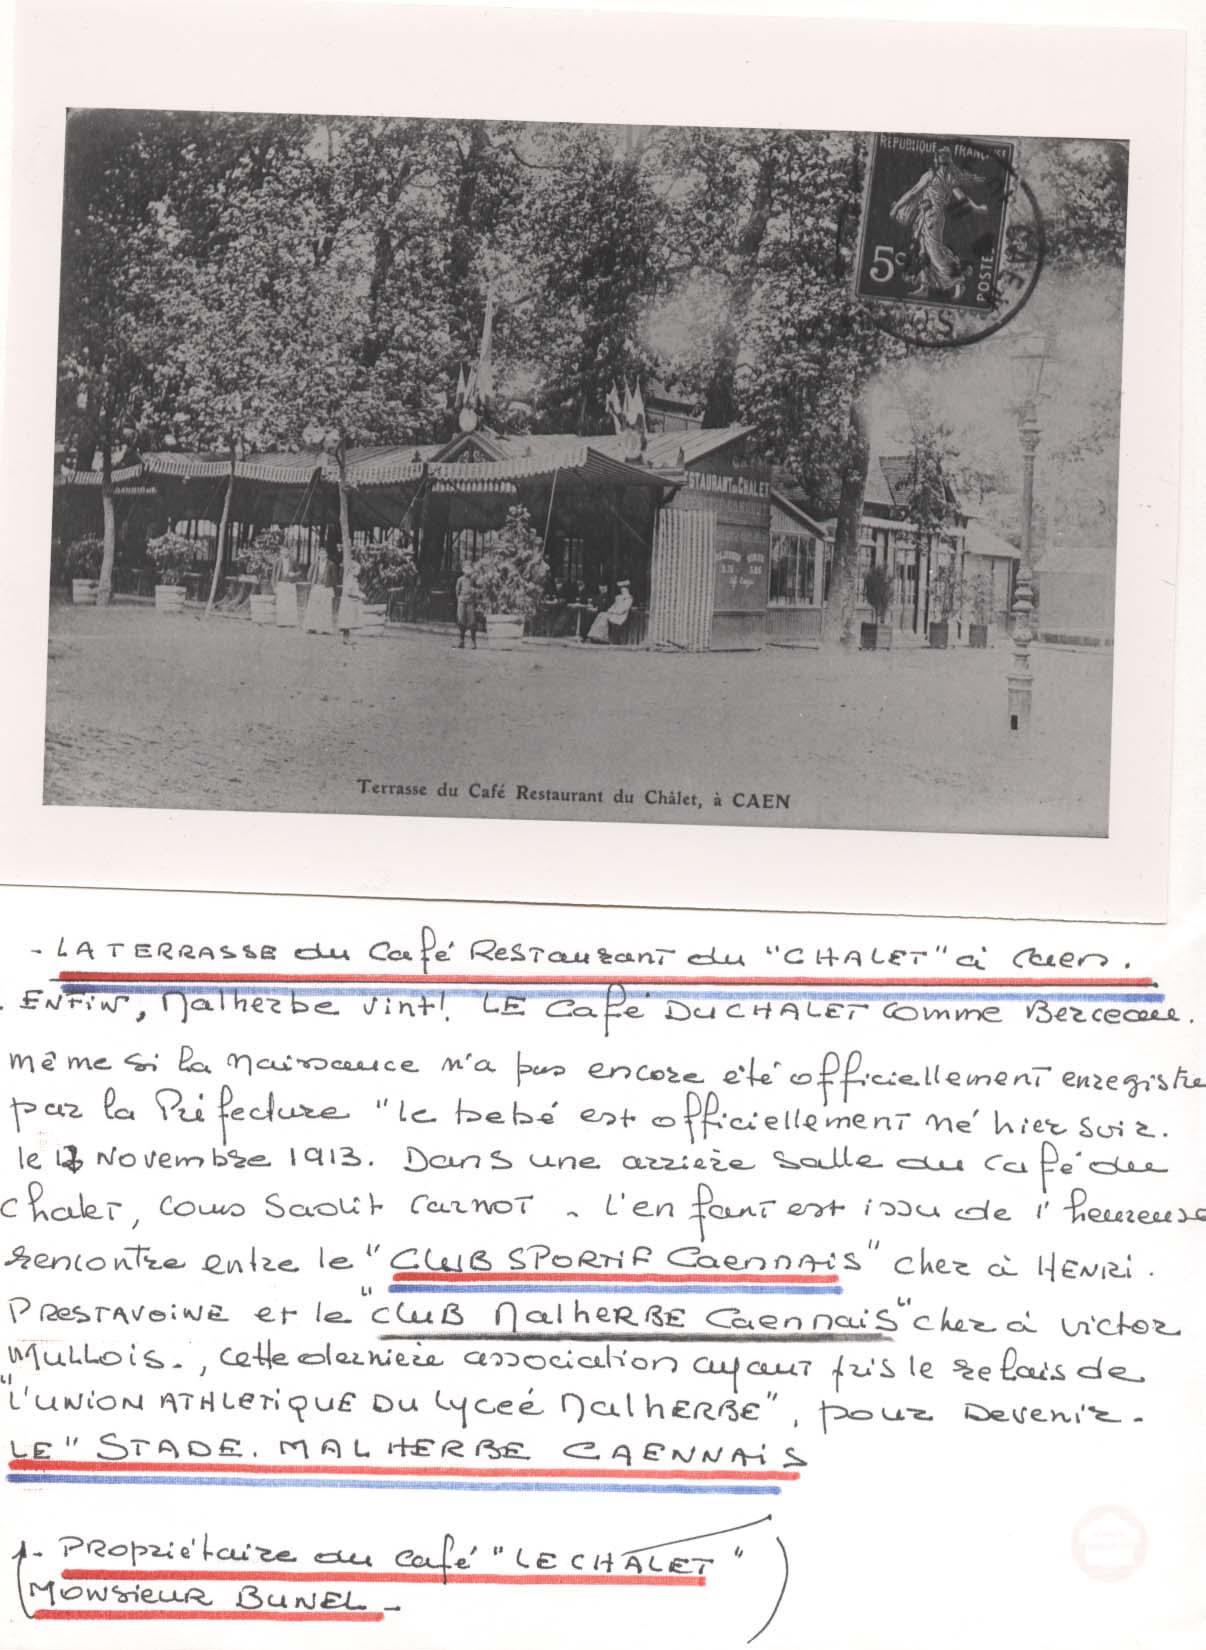 RÉPUBLIQUE FRANÇAISE
5c
POSTE
CAEN
RESTAURANT DU CHALET
Terrasse du Café Restaurant du Châlet, à CAEN
- LA TERRASSE du Café RESTAURANT du "CHALET" à Caen.
. ENFIN, Malherbe vint! LE Café DU CHALET comme Berceau.
même si la Naissance n'a pas encore été officiellement enregistre
par la Préfecture "le bebé est officiellement né hier soir.
le Novembre 1913. Dans une arrière salle du café du
chalet, cours Sadit Carnot - l'enfant est issu de l'heureuse
rencontre entre le "CLUB SPORTIF Caennais" cher à HENRI.
PRESTAVOINE et le "CLUB MalHERBE Caennais" cher à victor
Mullois., cette dernière association ayant pris le relais de
"L'UNION ATHLETIQUE DU Lyceé MalHERBE", pour DEVENIR.
LE "STADE. MALHERBE CAENNAIS
(1- PROPRIÉtaire du café "LE CHALET"
MONSIEUR BUNEL - )